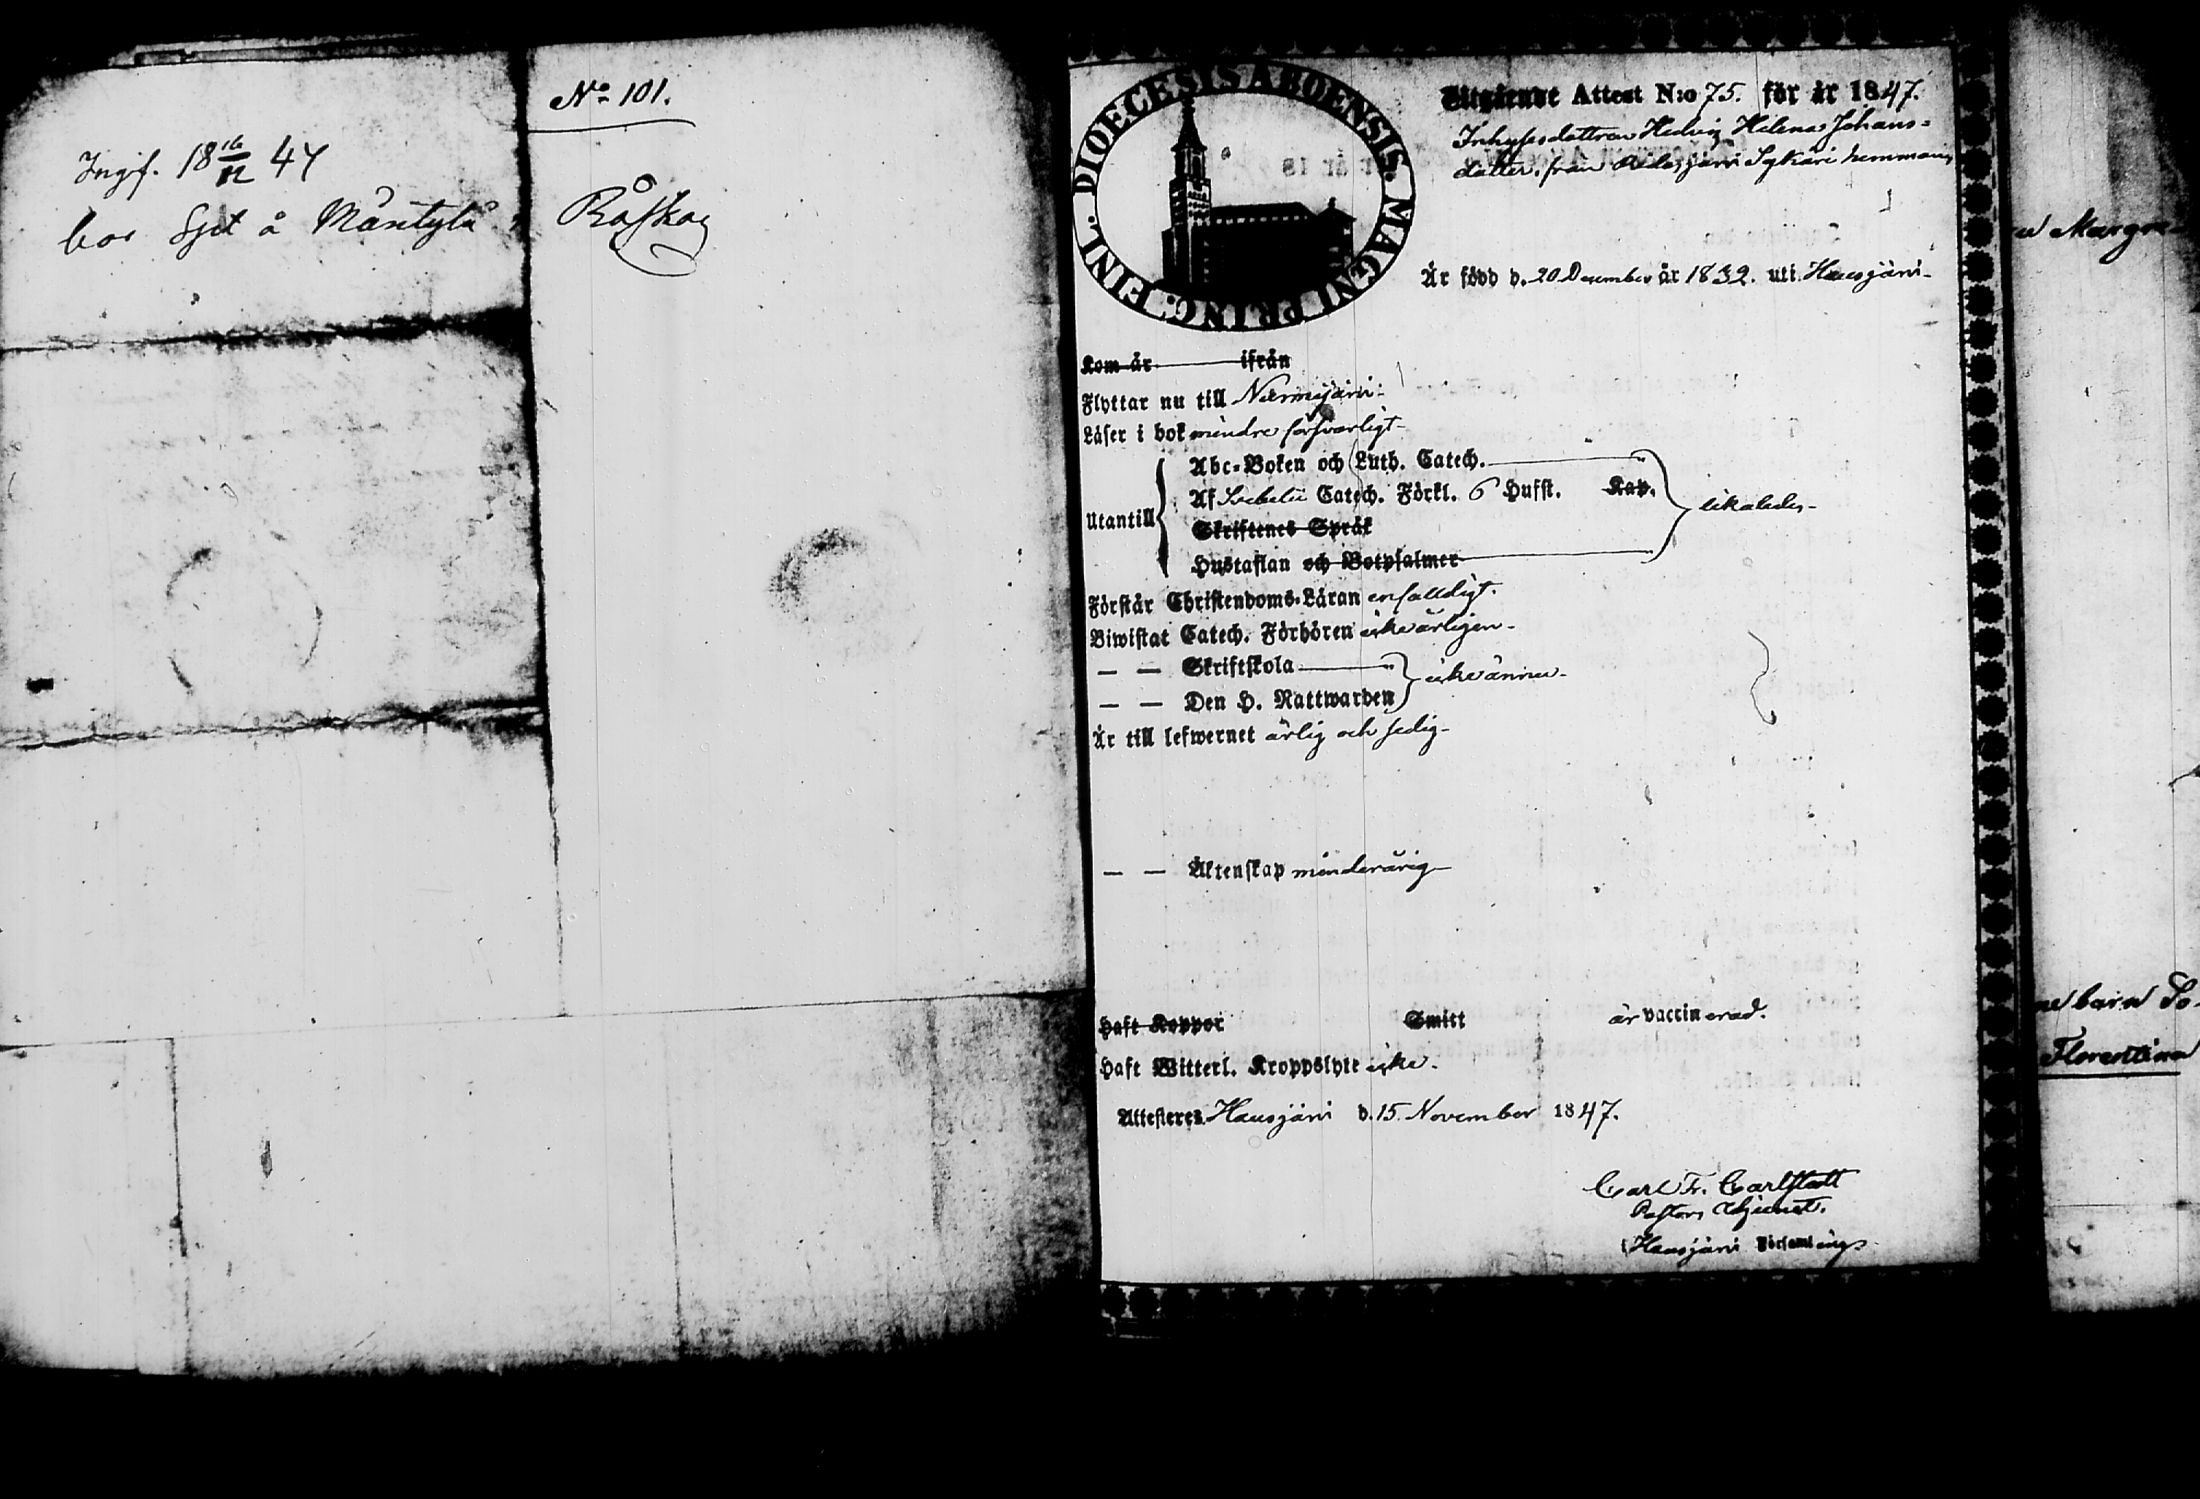 Ingif. 18 16/12 47
bor Sjit å Mäntylä
No 101.
Råskog
DIOECESIS ABOENSIS. MAGNI PRINC. FINL.
Utgående Attest N:o 75. för år 1847.
Inhysesdottren Hedvig Helena Johans-
dotter, från hemmans
Är född d. 20 December år 1832. uti Hausjärvi
Kom år ifrån
Flyttar nu till Nurmijärvi
Läser i bok mindre försvarligt
Abc-Boken och Luth. Catech.
Af Svebelii Catech. Förkl. 6 Hufst. Kap.
Utantill
likaledes
Skriftenes Språk
Hustaflan och Botpsalmer
Förstår Christendoms-Läran enfalldigt.
Biwistat Catech. Förhören icke årligen
— — Skriftskola
icke ännu
— — Den H. Nattwarden
Är till lefwernet ärlig och sedig
— — Äktenskap minderårig
Haft Koppor Smitt är vaccinerad.
Haft Witterl. Kroppslyte icke.
Attesteres Hausjärvi d. 15. November 1847.
Carl Fr. Carlstedt
Pastors Adjunct.
Hausjärvi Församlings
Margre-
barn So-
Florentina